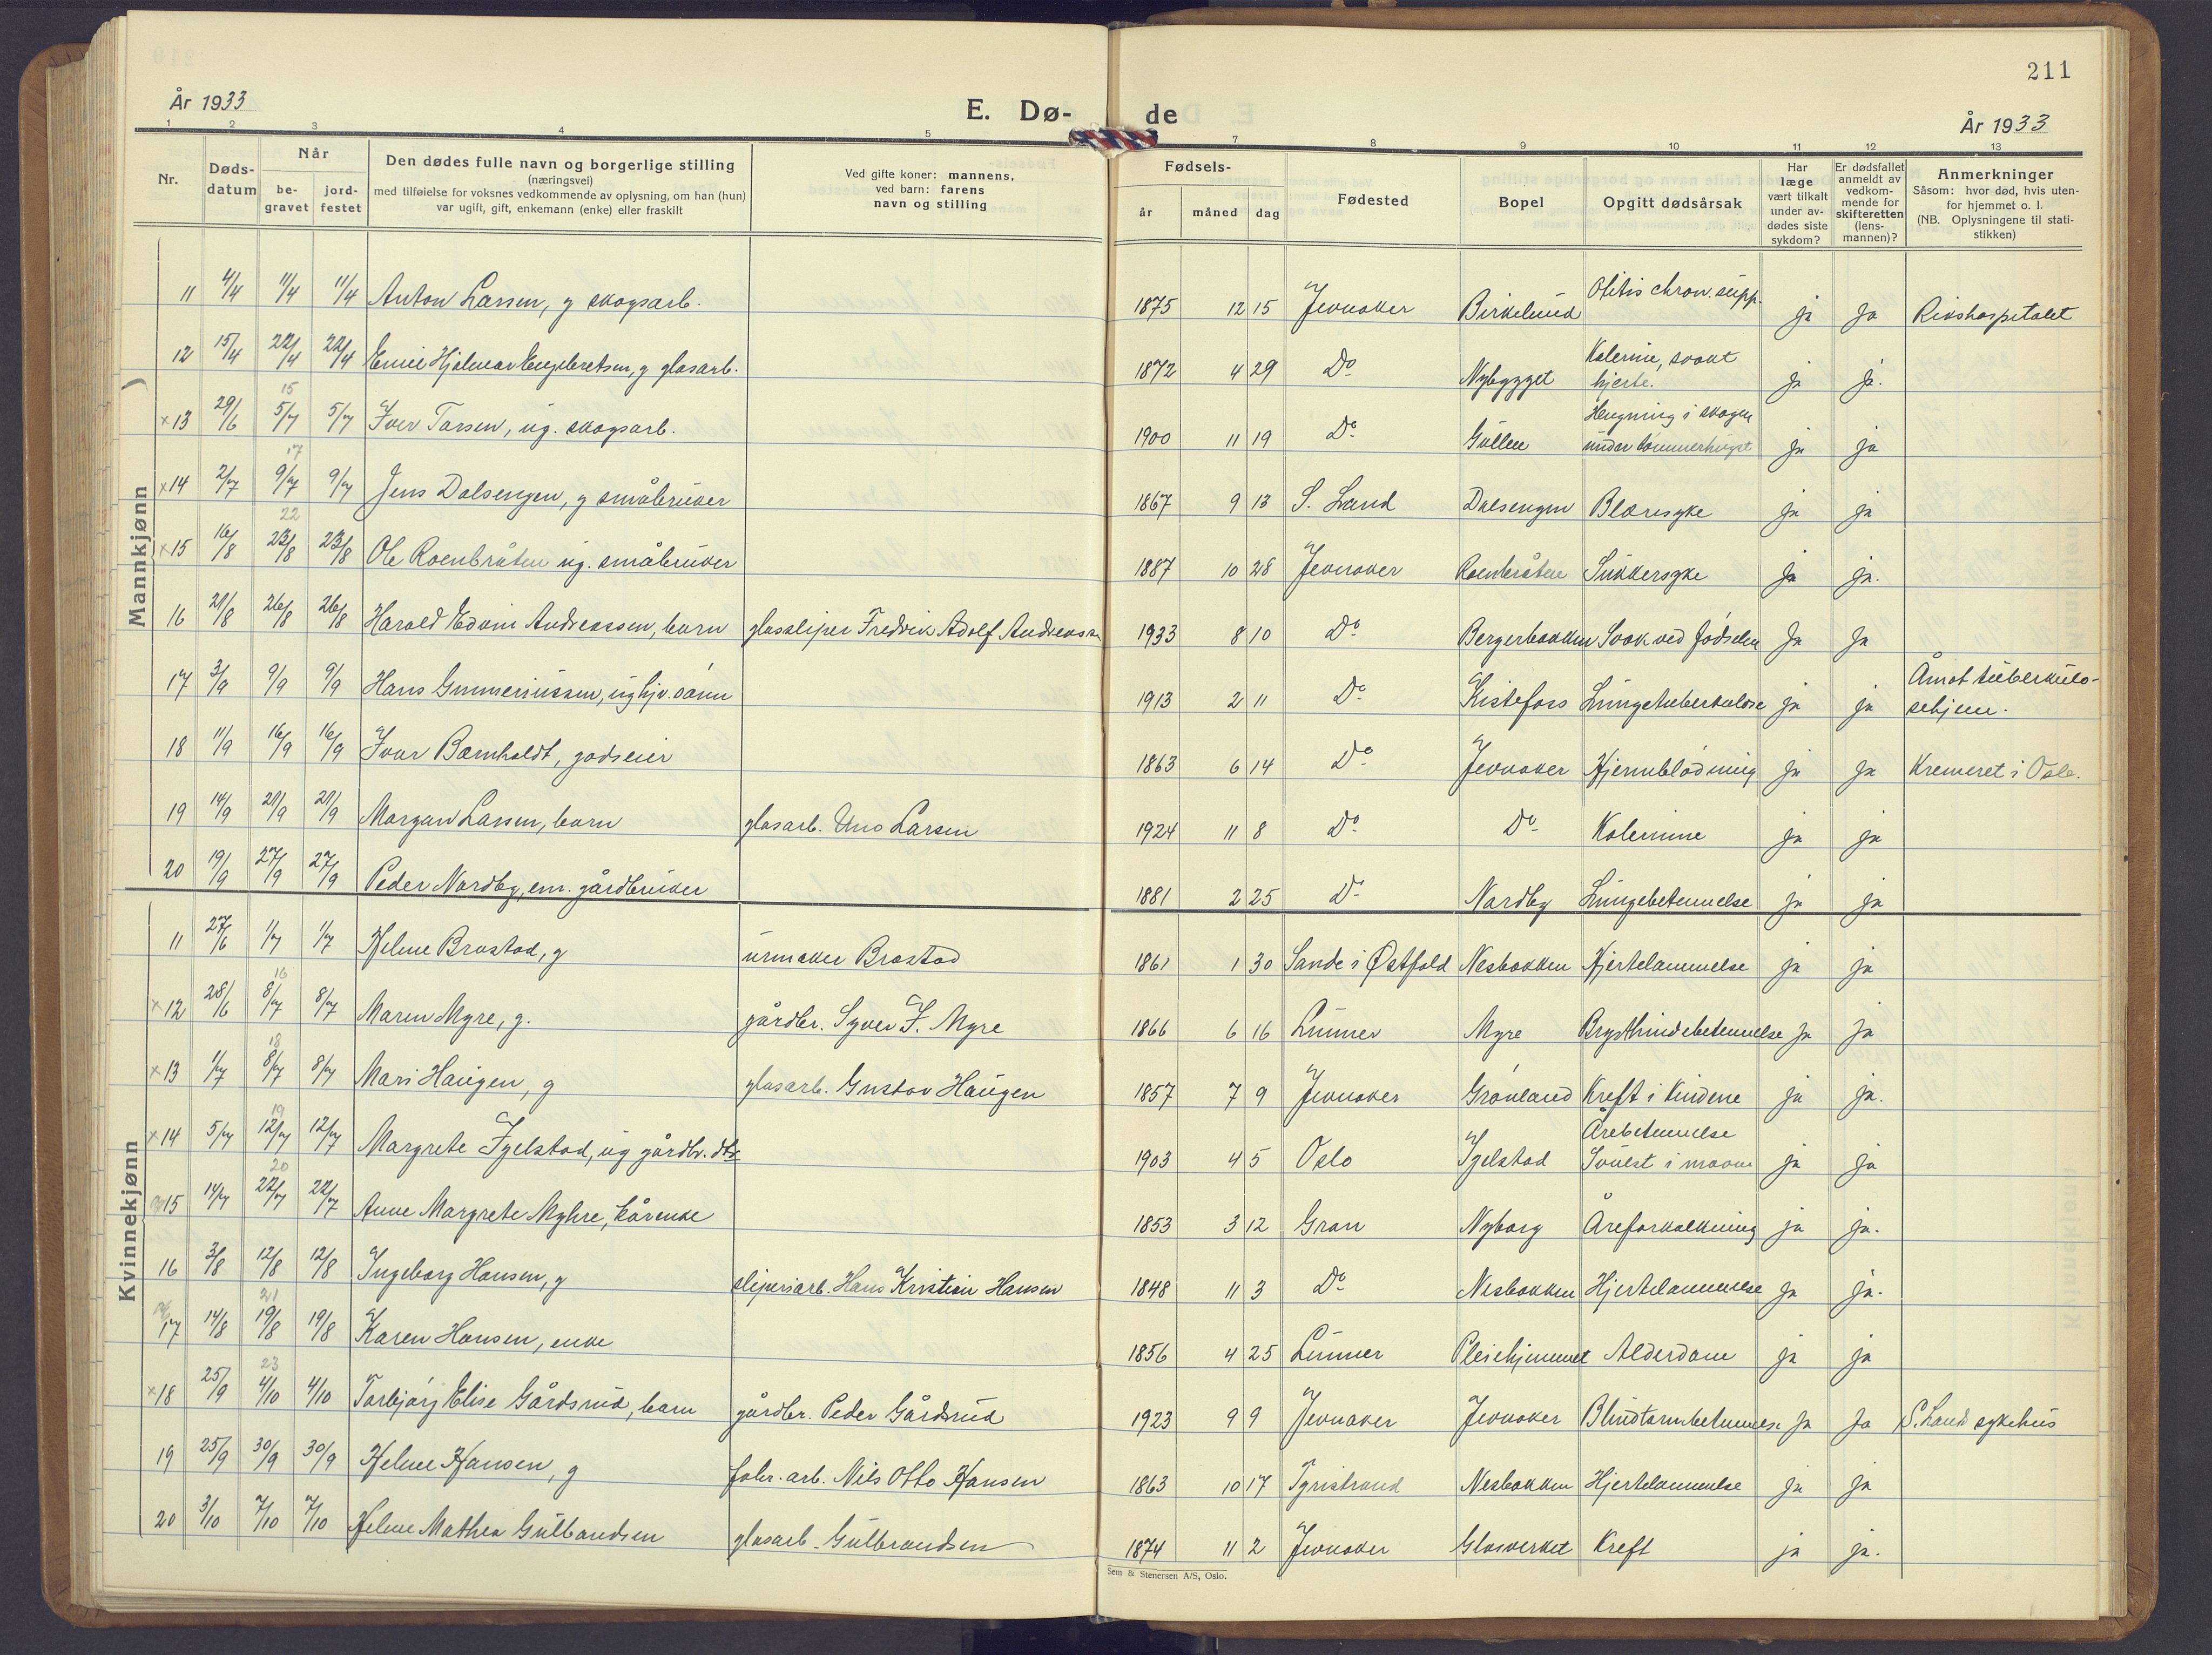 211
År 1933
E. Dø-
de
År 1933
1 2 3 4 5 7 8 9 10 11 12 13
Nr.
Døds-
datum
Når
be-
gravet
jord-
festet
Den dødes fulle navn og borgerlige stilling
(næringsvei)
med tilføielse for voksnes vedkommende av oplysning, om han (hun)
var ugift, gift, enkemann (enke) eller fraskilt
Ved gifte koner: mannens,
ved barn: farens
navn og stilling
Fødsels-
år måned dag
Fødested
Bopel
Opgitt dødsårsak
Har
læge
vært tilkalt
under av-
dødes siste
sykdom?
Er dødsfallet
anmeldt av
vedkom-
mende for
skifteretten
(lens-
mannen)?
Anmerkninger
Såsom: hvor død, hvis uten-
for hjemmet o. l.
(NB. Oplysningene til stati-
stikken)
Mannkjønn
11 4/4 11/4 11/4 Anton Larsen, g skogsarb. 1875 12 15 Jevnaker Birkelund Otitis chron. supp. ja ja Rikshospitalet
12 15/4 22/4 22/4 Emil Hjalmar Engebretsen, g glasarb. 1872 4 29 Do Nybygget Kolerine, svakt
hjerte. ja ja.
15
x13 29/6 5/7 5/7 Iver Tarsen, ug. skogsarb. 1900 11 19 Do Gullen Hengning i skogen
under tømmerhugst ja ja
17
x14 2/7 9/7 9/7 Jens Dalsengen, g småbruker 1867 9 13 S. Land Dalsengen Blæresyke ja ja
22
x15 16/8 23/8 23/8 Ole Roenbråten ug. småbruker 1887 10 28 Jevnaker Roenbråten Sukkersyke ja ja.
16 21/8 26/8 26/8 Harald Edvin Andreassen, barn glassliper Fredrik Adolf Andreassen 1933 8 10 Do Bergerbakken Svak ved fødselen ja ja
17 3/9 9/9 9/9 Hans Gummeriussen, ug hjv. sønn 1913 2 11 Do Kistefoss Lungetuberkulose ja ja Åmot tuberkulo-
sehjem.
18 11/9 16/9 16/9 Ivar Barnholdt, godseier 1863 6 14 Do Jevnaker Hjerneblødning ja ja Kremeret i Oslo.
19 14/9 21/9 21/9 Morgan Larsen, barn glasarb. Uno Larsen 1924 11 8 Do Do Kolerine ja ja
20 19/9 27/9 27/9 Peder Nordby, em. gårdbruker 1881 2 25 Do Nordby Lungebetennelse ja ja
Kvinnekjønn
11 27/6 1/7 1/7 Helene Brastad, g urmaker Brastad 1861 1 30 Sande i Østfold Nesbakken Hjertelammelse ja ja
16
x12 28/6 8/7 8/7 Maren Myre, g. gårdbr. Syver S. Myre 1866 6 16 Lunner Myre Brysthindebetennelse ja ja
18
x13 1/7 8/7 8/7 Mari Haugen, g glasarb. Gustav Haugen 1857 7 9 Jevnaker Grønland Kreft i kindene ja ja.
19
x14 5/7 12/7 12/7 Margrete Igelstad, ug gårdbr. dtr 1903 4 5 Oslo Igelstad Årebetennelse
Svulst i maven ja ja
20
15 14/7 22/7 22/7 Anne Margrete Myhre, kårenke 1853 3 12 Gran Nyborg Åreforkalkning ja ja.
16 3/8 12/8 12/8 Ingeborg Hansen, g sliperiarb. Hans Kristian Hansen 1848 11 3 Do Nesbakken Hjertelammelse ja ja.
21
17 14/8 19/8 19/8 Karen Hansen, enke 1856 4 25 Lunner Pleiehjemmet Alderdom ja ja
23
x18 25/9 4/10 4/10 Torbjørg Elise Gårdsrud, barn gårdbr. Peder Gårdsrud 1923 9 9 Jevnaker Jevnaker Blindtarmbetennelse ja ja S. Land sykehus
19 25/9 30/9 30/9 Helene Hansen, g fabr. arb. Nils Otto Hansen 1863 10 17 Tyristrand Nesbakken Hjertelammelse ja ja
20 3/10 7/10 7/10 Helene Mathea Gulbandsen glasarb. Gulbrandsen 1874 11 2 Jevnaker Glasverket Kreft ja ja.
Sem & Stenersen A/S, Oslo.